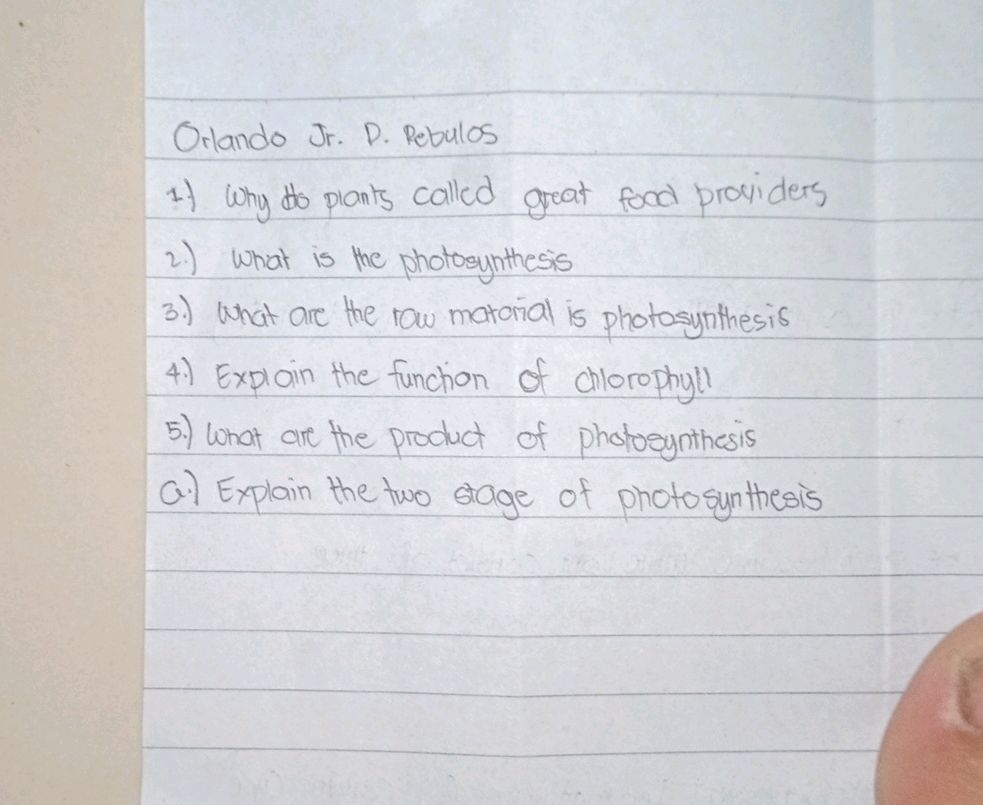 Orlando Jr. D. Rebulos
1) Why do plants called great food providers
2.) What is the photosynthesis
3.) What are the row matorial is photosynthesis
4.) Explain the function of chlorophyll
5.) What are the product of photosynthesis
a.) Explain the two stage of photosynthesis